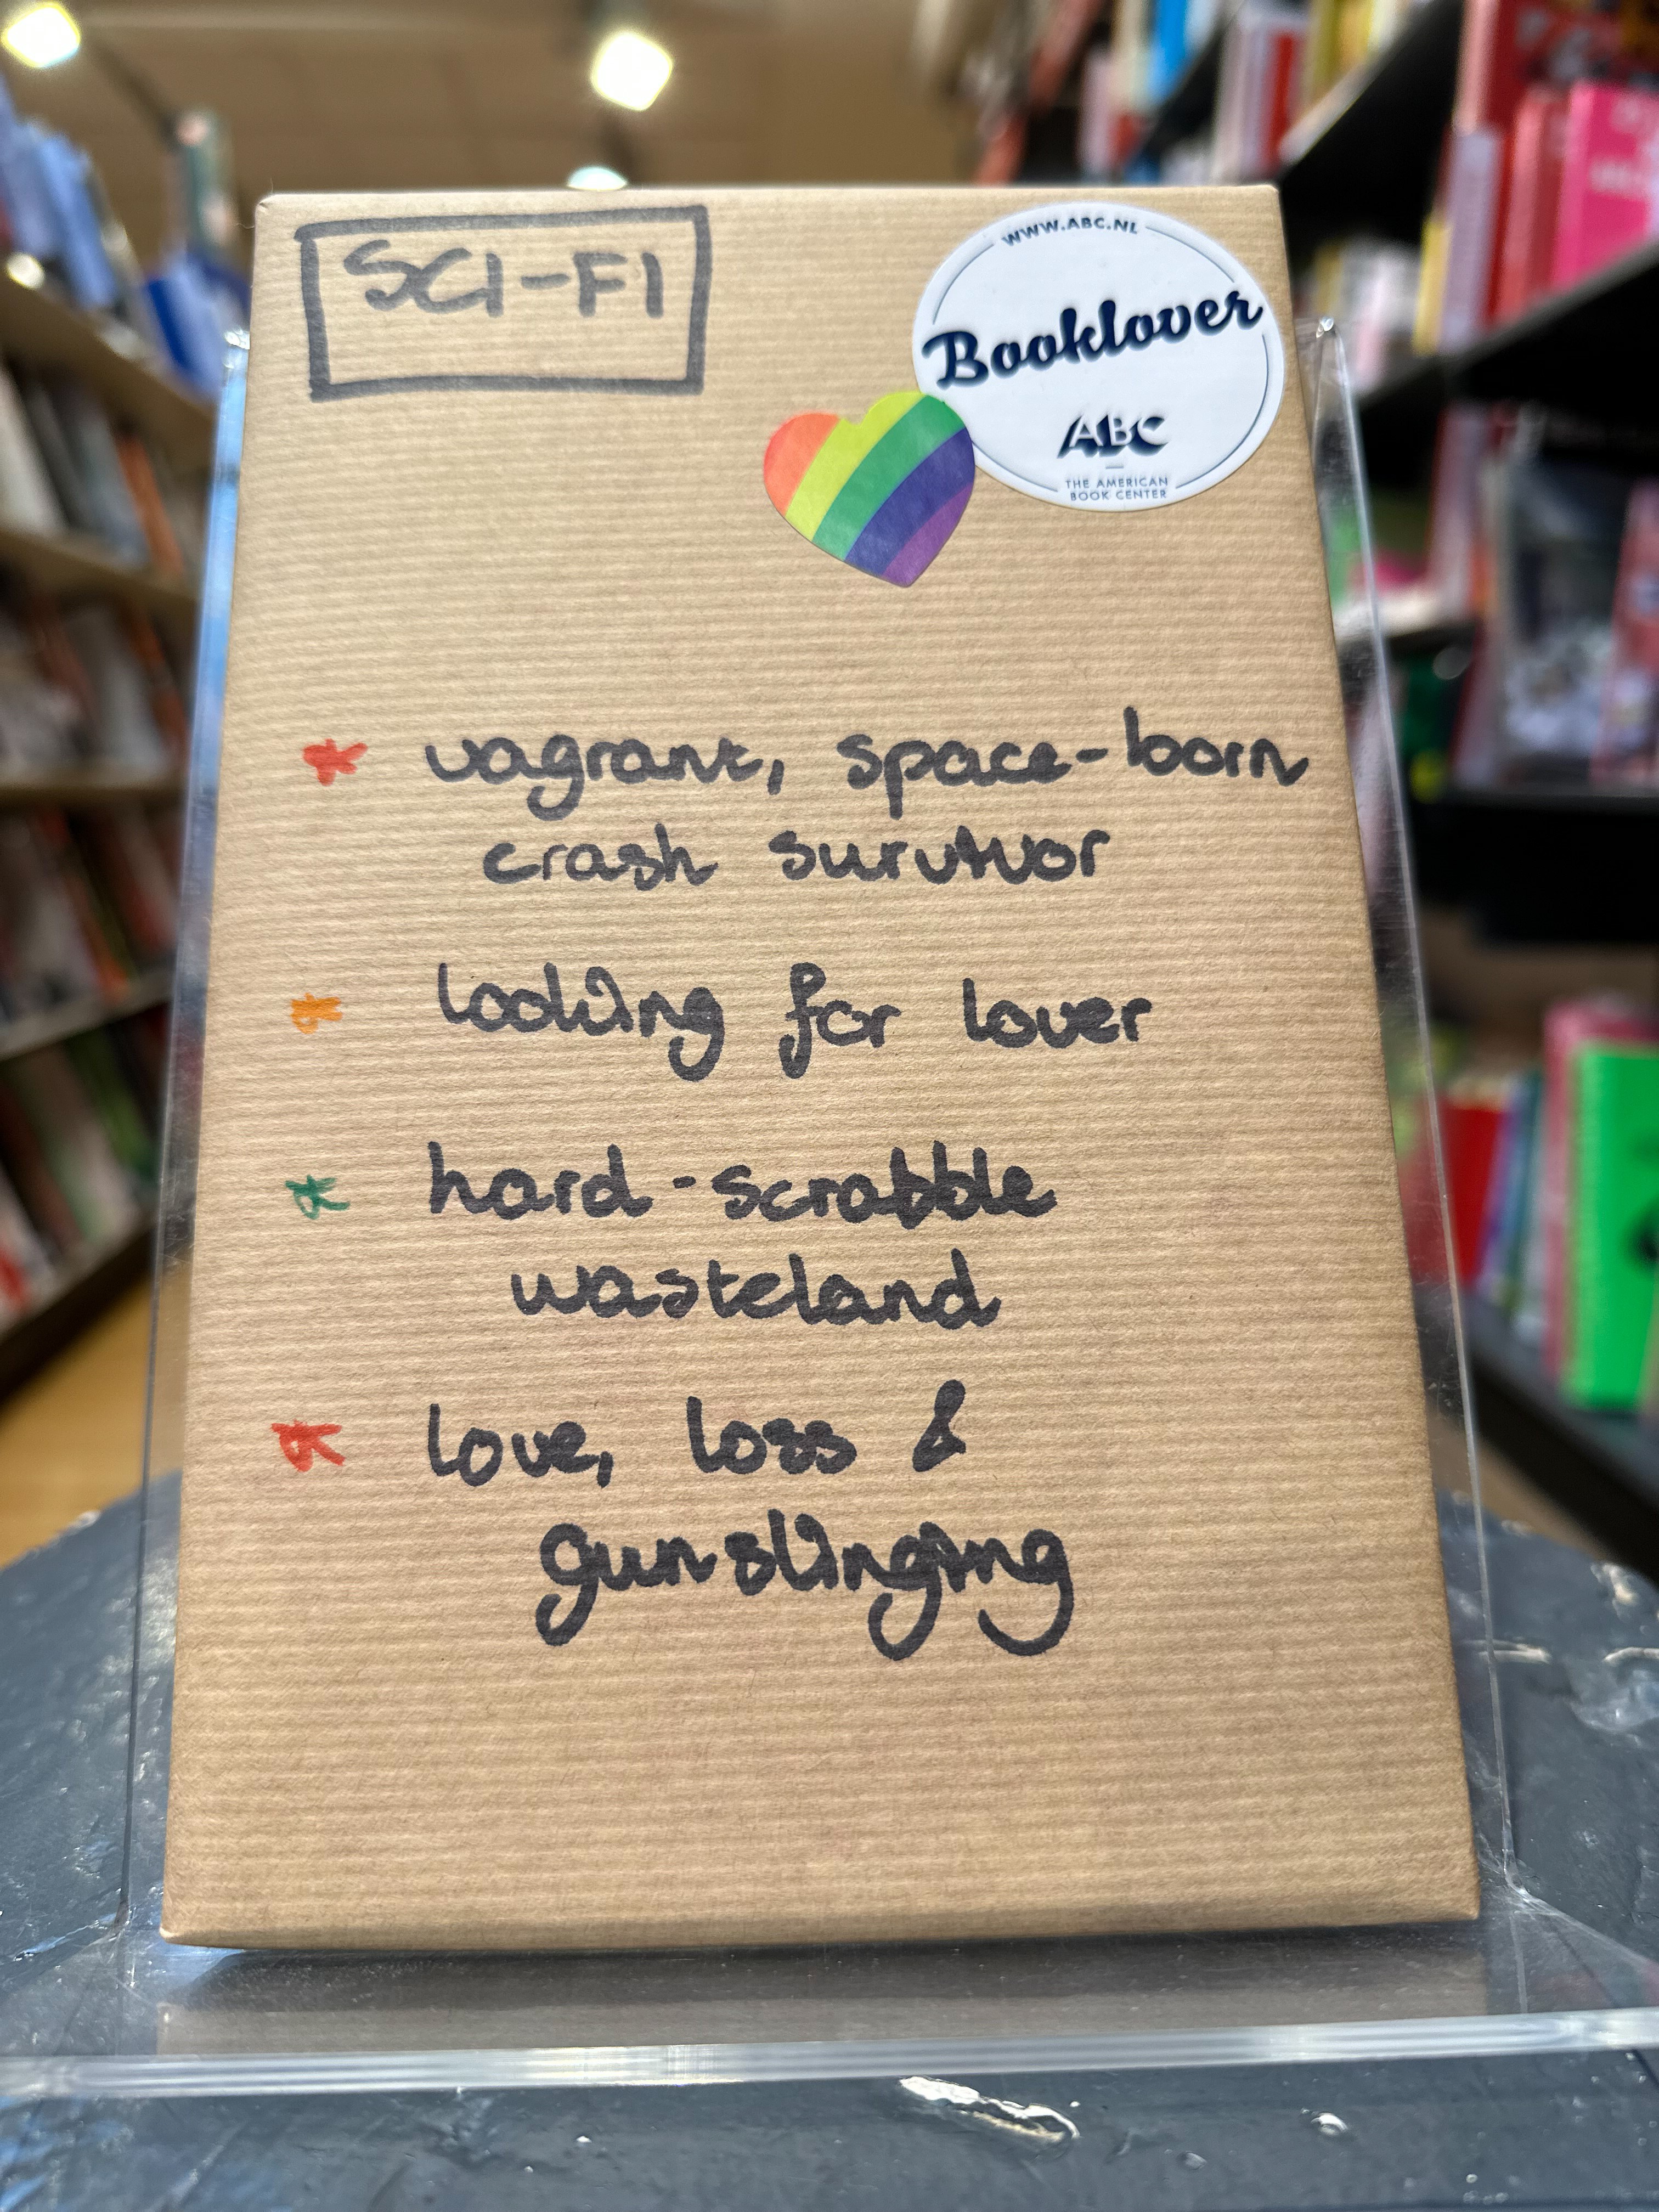 SCI-FI
WWW.ABC.NL
Booklover
ABC
THE AMERICAN
BOOK CENTER
* vagrant, space-born
crash survivor
* looking for lover
* hard-scrabble
wasteland
* love, loss &
gunslinging